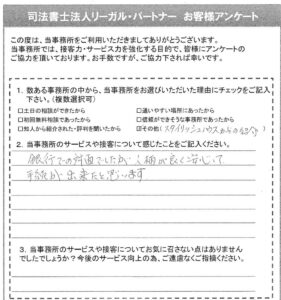 司法書士法人リーガル・パートナー お客様アンケート
この度は、当事務所をご利用いただきましてありがとうございます。
当事務所では、接客力・サービス力を強化する目的で、皆様にアンケートの
ご協力を頂いております。お手数ですが、ご協力下されば幸いです。
1. 数ある事務所の中から、当事務所をお選びいただいた理由にチェックをご記入
下さい。(複数選択可)
□土日の相談ができたから □通いやすい場所にあったから
□初回無料相談であったから □信頼ができそうな事務所であったから
□知人から紹介された・評判を聞いたから ☑その他(スタイリッシュハウスからの紹介)
2. 当事務所のサービスや接客について感じたことをご記入ください。
銀行での対面でしたが 人柄が良く安心して
手続が出来たと思います
3. 当事務所のサービスや接客についてお気に召さない点はありません
でしたでしょうか？今後のサービス向上の為、ご遠慮なくご指摘ください。